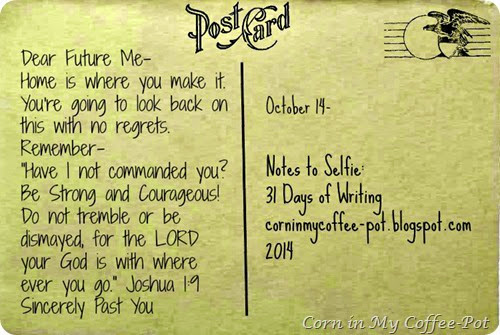 Post Card
Dear Future Me-
Home is where you make it.
You're going to look back on
this with no regrets.
Remember-
"Have I not commanded you?
Be Strong and Courageous!
Do not tremble or be
dismayed, for the LORD
your God is with where
ever you go." Joshua 1:9
Sincerely Past You
October 14-
Notes to Selfie:
31 Days of Writing
corninmycoffee-pot.blogspot.com
2014
Corn in My Coffee-Pot